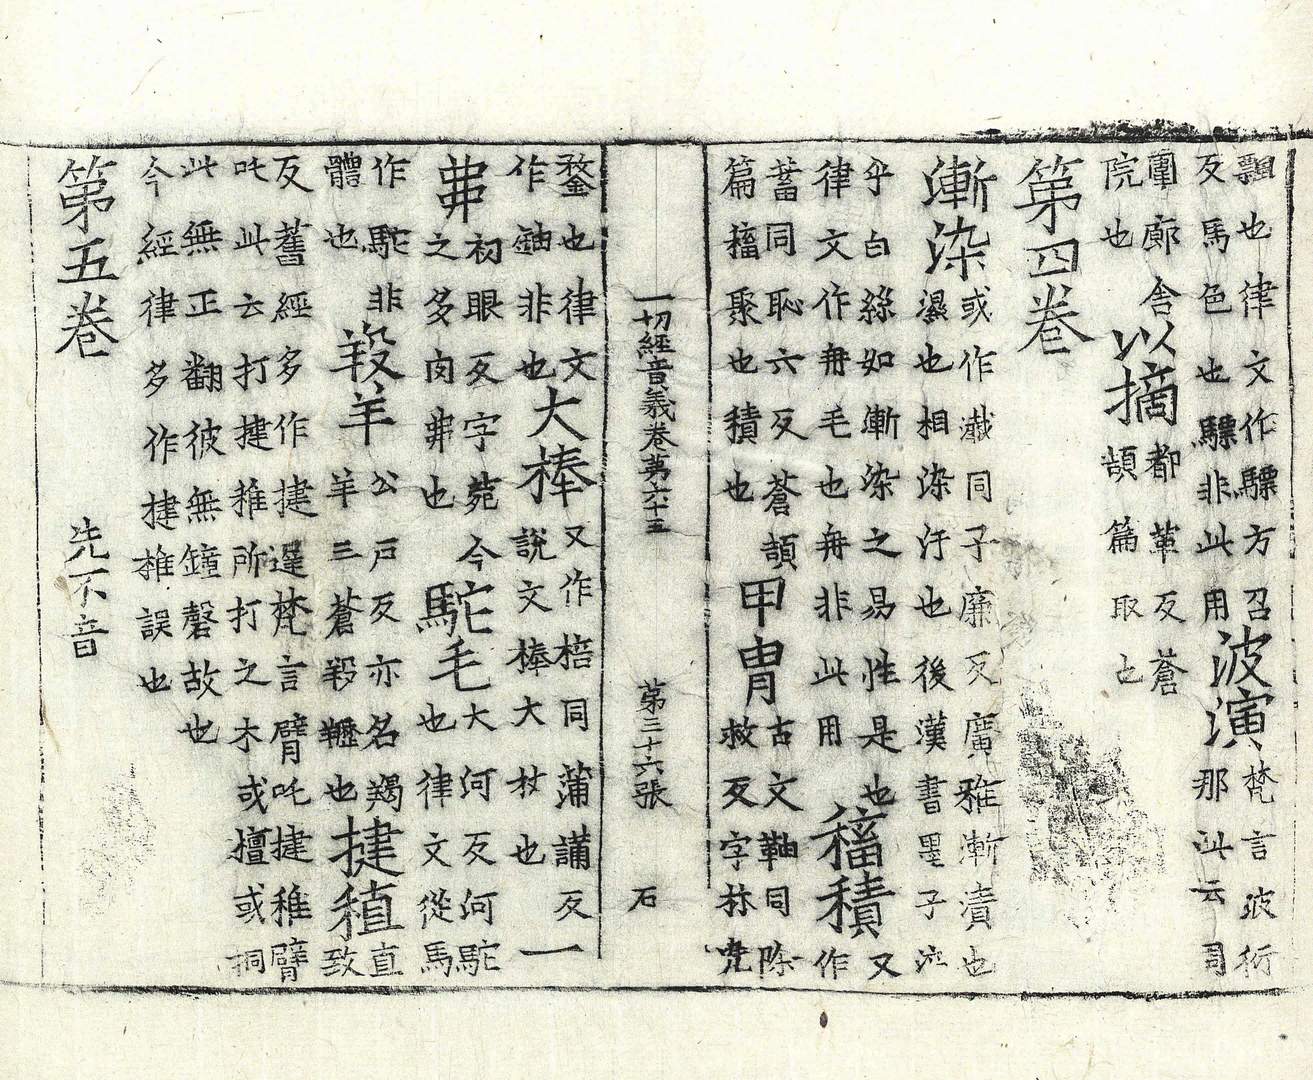 飄也律文作驃方召
反馬色也驃非此用
波演
梵言波衍
那此云周
圍廊舍
院也
以摘
都革反蒼
頡篇取也
第四卷
漸染
或作瀸同子廉反廣雅漸漬也
濕也相染汙也後漢書墨子泣
乎白絲如漸染之易性是也
律文作冉毛也冉非此用
稸積
又
作
蓄同恥六反蒼頡
篇稸聚也積也
甲冑
古文䩜同除
救反字林兜
一切經音義卷第六十五 第三十六張 石
鍪也律文
作鈾非也
大棒
又作棓同蒲講反
說文棒大杖也
一
丳
初眼反字苑今
之炙肉丳也
駝毛
大何反何駝
也律文從馬
作駝非
體也
羖羊
公戶反亦名羯
羊三蒼羖䍽也
揵稙
直
致
反舊經多作揵遲梵言臂吒揵稚臂
吒此云打揵稚所打之木或檀或桐
此無正翻彼無鐘磬故也
今經律多作揵椎誤也
第五卷 先不音